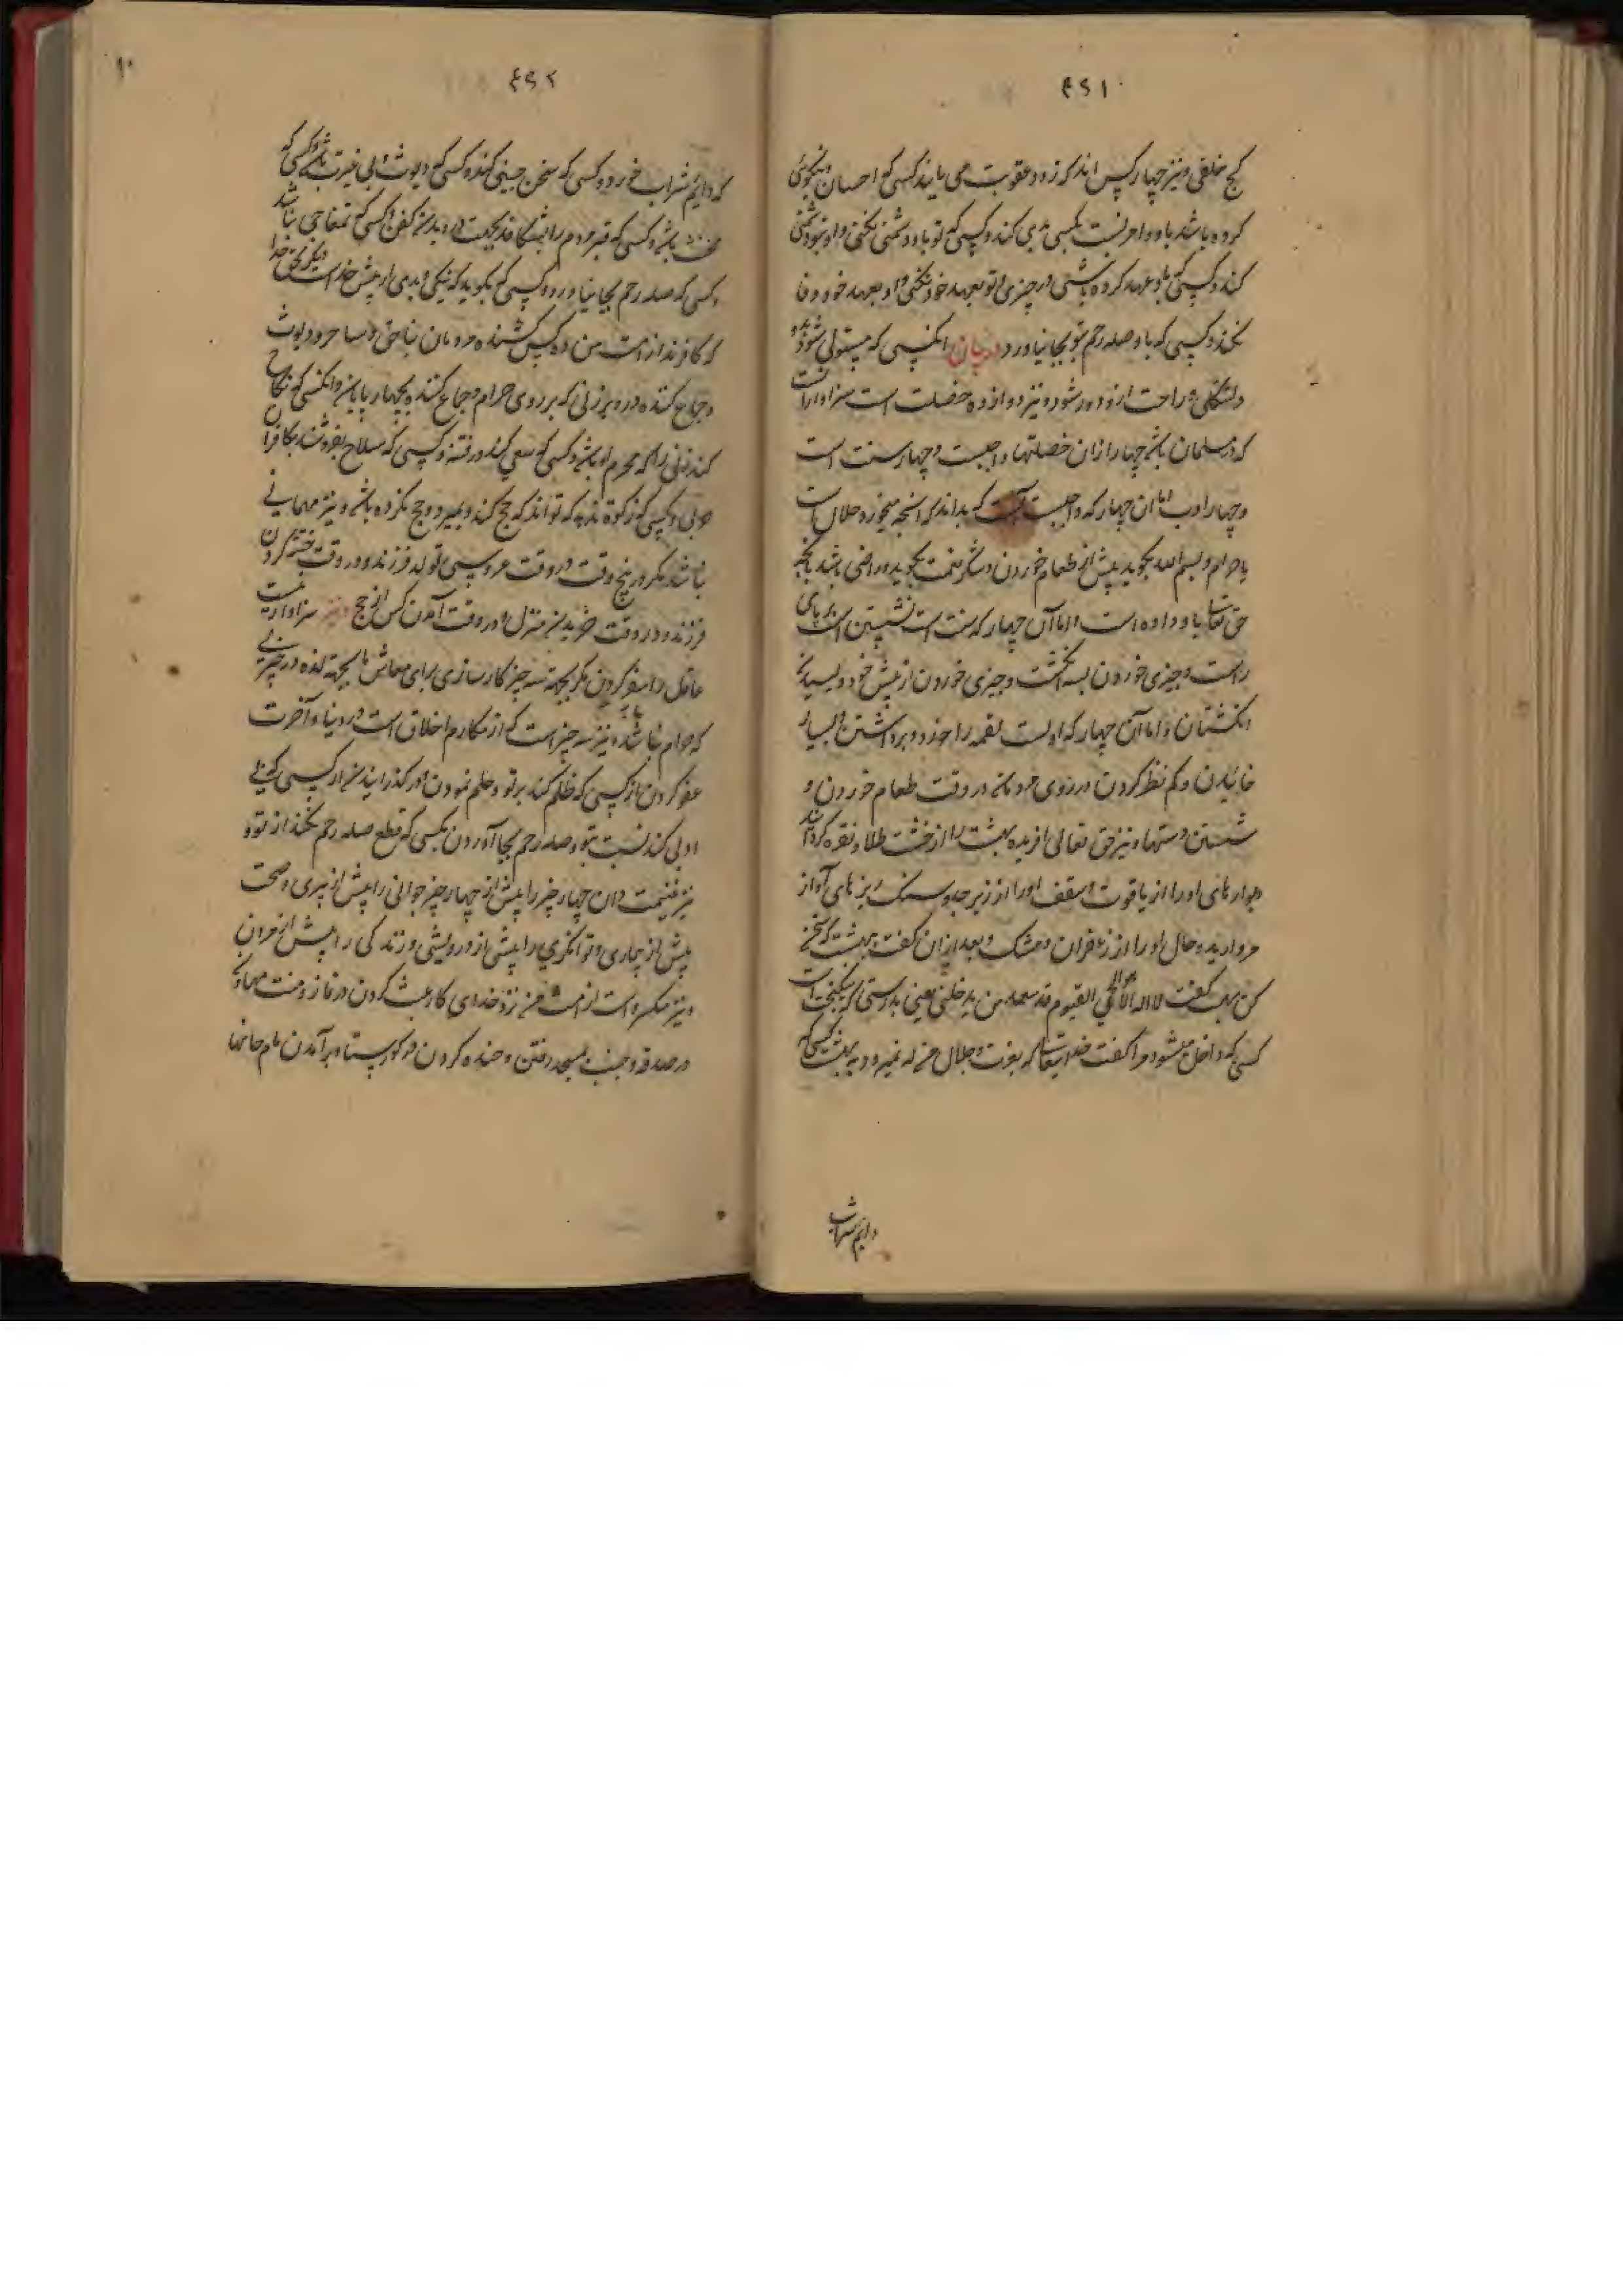 ۴۹۱
کج خلقی و نیز چهار کس اند که زود عقوبت می یابند کسی که احسان و نیکوئی
کرده باشد باو و او نسبت بکسی بدی کند و کسی که تو باو دشمنی نکنی و او بتو دشمنی
کند و کسی که باو عهد کرده باشی در چیزی و تو بعهد خود نکنی و او بعهد خود وفا
نکند و کسی که باو صله رحم تو بجا نیاورد انکسی که مستولی شود برو
دلتنگی راحت ازو دور شود و نیز دوازده خصلت است سزاوار است
که در مسلمان باشد چهار ازان خصلتها واجبست و چهار سنت است
و چهار ادب اما ان چهار که واجبست آنست که بداند که آنچه میخورد حلال است
یا حرام و بسم الله بگوید پیش از طعام خوردن و شکر نعمت بگوید و راضی باشد بآنچه
حق تعالی باو داده است و اما آن چهار که سنت است نشستن است بر پای
راست و چیزی خوردن بسه انگشت و چیزی خوردن از پیش خود و لیسیدن
انگشتان و اما آن چهار که ادبست لقمه را خورد برداشتن و بسیار
خائیدن و کم نظر کردن در روی مردمان در وقت طعام خوردن و
شستن دستها و نیز حق تعالی افریده بهشت را از خشت طلا و نقره گردانید
دیوارهای او را از یاقوت و سقف او را از زبرجد و سنک ریزهای آواز
مروارید و خاک او را از زعفران و مشک و بعد ازان گفت بهشت که سخن
کن بهشت گفت لا اله الا الله الحی القیوم قد سعد من یدخلنی یعنی بدرستی که نیکبخت است
کسی که داخل میشود مرا گفت خدایتعالی که بعزت و جلال من که نمیرود به بهشت کسی که
دایم شراب
۴۹۲
۱۰
که دایم شراب خورد و کسی که سخن چینی کند و کسی که دیوث و بی غیرت باشد و کسی که
مخنث باشد و کسی که قبر مردم را بشکافد بجهت دزدیدن کفن و کسی که تمغاچی باشد
و کسی که صله رحم بجا نیاورد و کسی که بگوید که نیکی و بدی از پیش خداست دیگر بحق خدا
که کافرند از امت من ده کس کشنده مردمان بناحق و ساحر و دیوث
و جماع کننده در دبر زنی که برروی حرام و جماع کننده بچهار پایان و انکسی که نکاح
کند زنی را که محرم او باشد و کسی که سعی کند در فتنه و کسی که سلاح بفروشد بکافران
حربی و کسی که زکوة ندهد که تواند که حج کند و بمیرد و حج نکرده باشد و نیز مهمانی
نباشد مکر در پنج وقت در وقت عروسی و تولد فرزند و در وقت ختنه کردن
فرزند و در وقت خریدن منزل و در وقت آمدن کس از حج و نیز سزاوار نیست
عاقل را سفر کردن مکر بجهته سه چیز کارسازی برای معاش یا بجهته لذه در چیزی
که حرام نباشد و نیز سه چیز است که از مکارم اخلاق است در دنیا و آخرت
عفو کردن از کسی که ظلم کند بر تو و حلم نمودن و در گذرانیدن از کسی که بی
ادبی کند نسبت بتو و صله رحم بجا آوردن بکسی که قطع صله رحم بکند از تو و
نیز غنیمت دان چهار چیز را پیش از چهار چیز جوانی را پیش از پیری و صحت
پیش از بیماری و توانگری را پیش از درویشی و زندگی را پیش از مردن
و نیز مکروه است از امت من نزد خدای کار عبث کردن در نماز و منت نهادن
در صدقه و جنب بمسجد رفتن و خنده کردن در گورستان و بر آمدن بام خانها